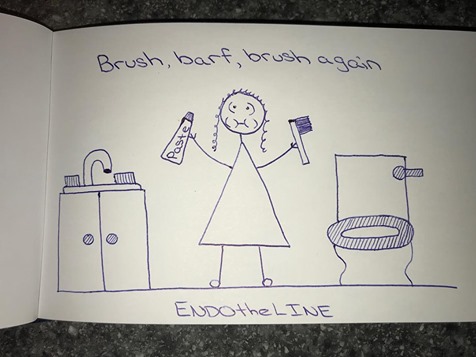 Brush, barf, brush again
Paste
ENDOtheLINE